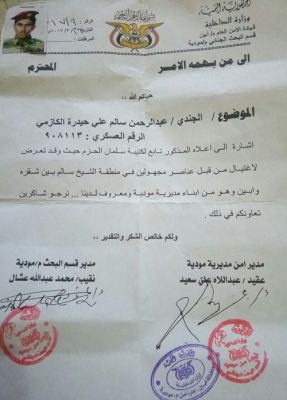 الجمهورية اليمنية
وزارة الداخلية
قيادة الامن العام م/ابين
قسم البحث الجنائي م/مودية
الرقم :
التاريخ :
المرفقات :
الى من يهمه الامر
المحترم
حياكم الله ،،
الموضوع/ الجندي / عبدالرحمن سالم علي حيدرة الكازمي
الرقم العسكري : ٩٠٨١١٣
اشارة الى اعلاه المذكور تابع لكتيبة سلمان الحزم حيث وقد تعرض
لاغتيال من قبل عناصر مجهولين في منطقة الشيخ سالم بين شقره
وابين وهو من ابناء مديرية مودية ومعروف لدينا ... نرجو شاكرين
تعاونكم في ذلك .
ولكم خالص الشكر والتقدير ،،
مدير امن مديرية مودية
عقيد / عبداللاه سعيد
مدير قسم البحث م/مودية
نقيب/ محمد عبدالله عشال